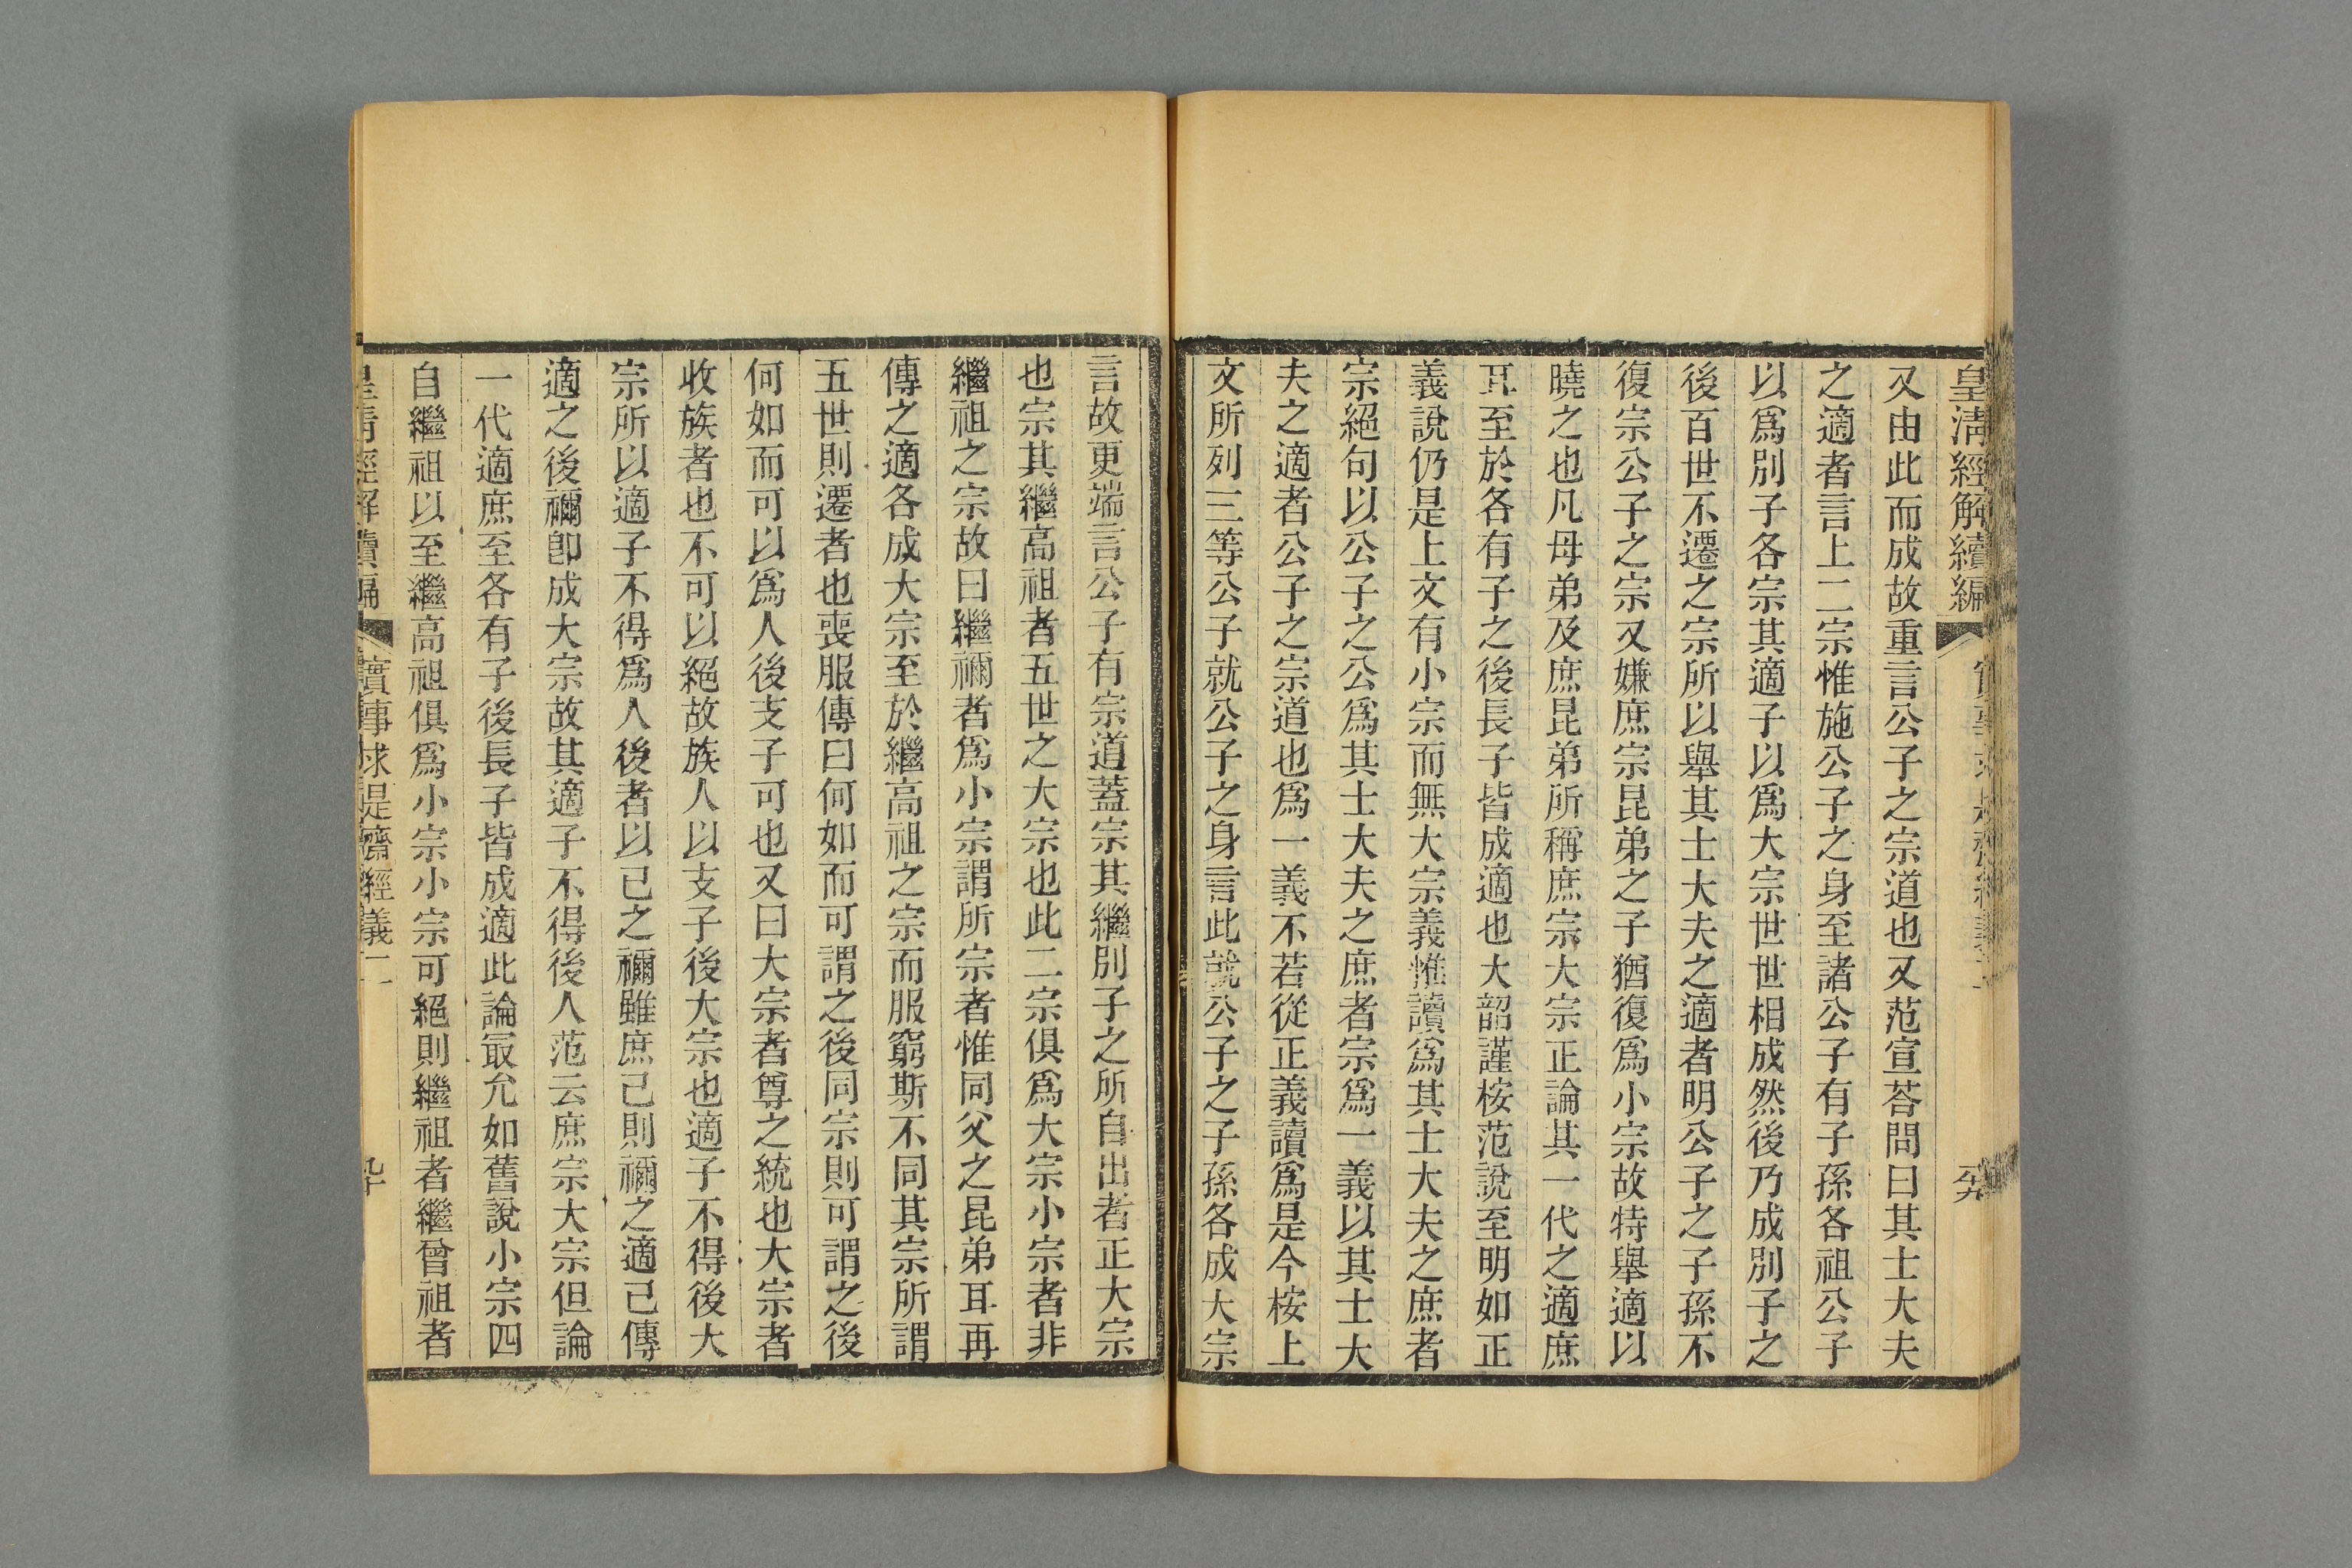 皇淸經解續編
又由此而成故重言公子之宗道也又范宣荅問曰其士大夫
之適者言上二宗惟施公子之身至諸公子有子孫各祖公子
以爲別子各宗其適子以爲大宗世世相成然後乃成別子之
後百世不遷之宗所以舉其士大夫之適者明公子之子孫不
復宗公子之宗又嫌庶宗昆弟之子猶復爲小宗故特舉適以
曉之也凡母弟及庶昆弟所稱庶宗大宗正論其一代之適庶
耳至於各有子之後長子皆成適也大韶謹桉范說至明如正
義說仍是上文有小宗而無大宗義惟讀爲其士大夫之庶者
宗絕句以公子之公爲其士大夫之庶者宗爲一義以其士大
夫之適者公子之宗道也爲一義不若從正義讀爲是今桉上
文所列三等公子就公子之身言此就公子之子孫各成大宗
言故更端言公子有宗道蓋宗其繼別子之所自出者正大宗
也宗其繼高祖者五世之大宗也此二宗俱爲大宗小宗者非
繼祖之宗故曰繼禰者爲小宗謂所宗者惟同父之昆弟耳再
傳之適各成大宗至於繼高祖之宗而服窮斯不同其宗所謂
五世則遷者也喪服傳曰何如而可謂之後同宗則可謂之後
何如而可以爲人後支子可也又曰大宗者尊之統也大宗者
收族者也不可以絕故族人以支子後大宗也適子不得後大
宗所以適子不得爲人後者以已之禰雖庶己則禰之適己傳
適之後禰卽成大宗故其適子不得後人范云庶宗大宗但論
一代適庶至各有子後長子皆成適此論㝡允如舊說小宗四
自繼祖以至繼高祖俱爲小宗小宗可絕則繼祖者繼曾祖者
實事求是齋經義二